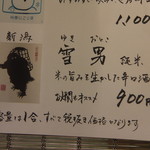 1,100
新潟
ゆき おとこ
雪男 純米
米の旨みを生かした辛口酒
お燗もオススメ 900円
容量は1合、すべて税抜き価格になります